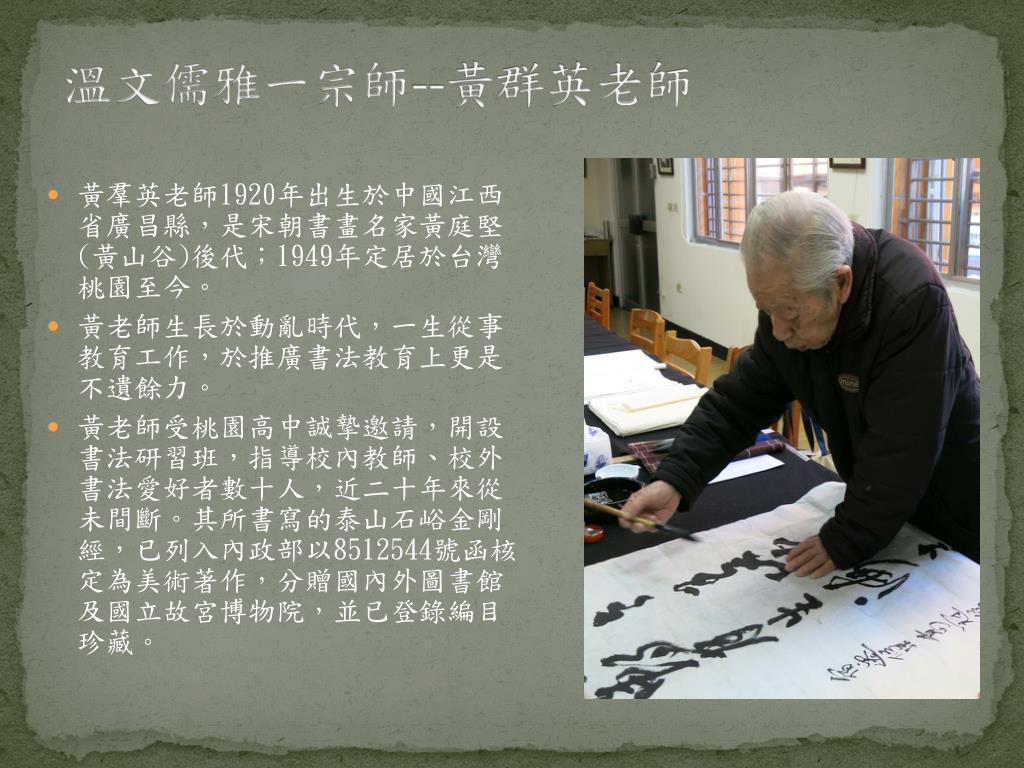 溫文儒雅一宗師--黃群英老師
黃羣英老師1920年出生於中國江西
省廣昌縣，是宋朝書畫名家黃庭堅
(黃山谷)後代；1949年定居於台灣
桃園至今。
黃老師生長於動亂時代，一生從事
教育工作，於推廣書法教育上更是
不遺餘力。
黃老師受桃園高中誠摯邀請，開設
書法研習班，指導校內教師、校外
書法愛好者數十人，近二十年來從
未間斷。其所書寫的泰山石峪金剛
經，已列入內政部以8512544號函核
定為美術著作，分贈國內外圖書館
及國立故宮博物院，並已登錄編目
珍藏。